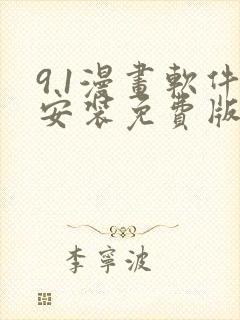 9.1漫畫軟件
安裝免費版
李寧波